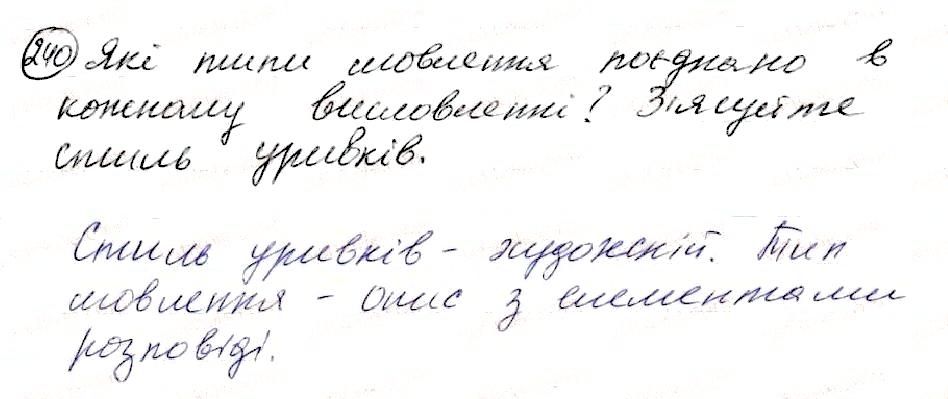 240 Які типи мовлення поєднано в
кожному висловленні? З'ясуйте
стиль уривків.
Стиль уривків - художній. Тип
мовлення - опис з елементами
розповіді.